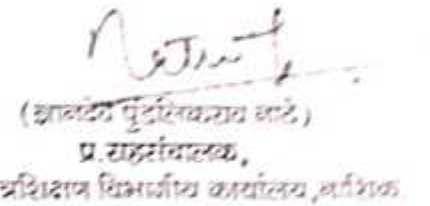 (ज्ञानदेव पुंडलिकराव नाठे)
प्र.सहसंचालक,
प्रशिक्षण विभागीय कार्यालय,नाशिक